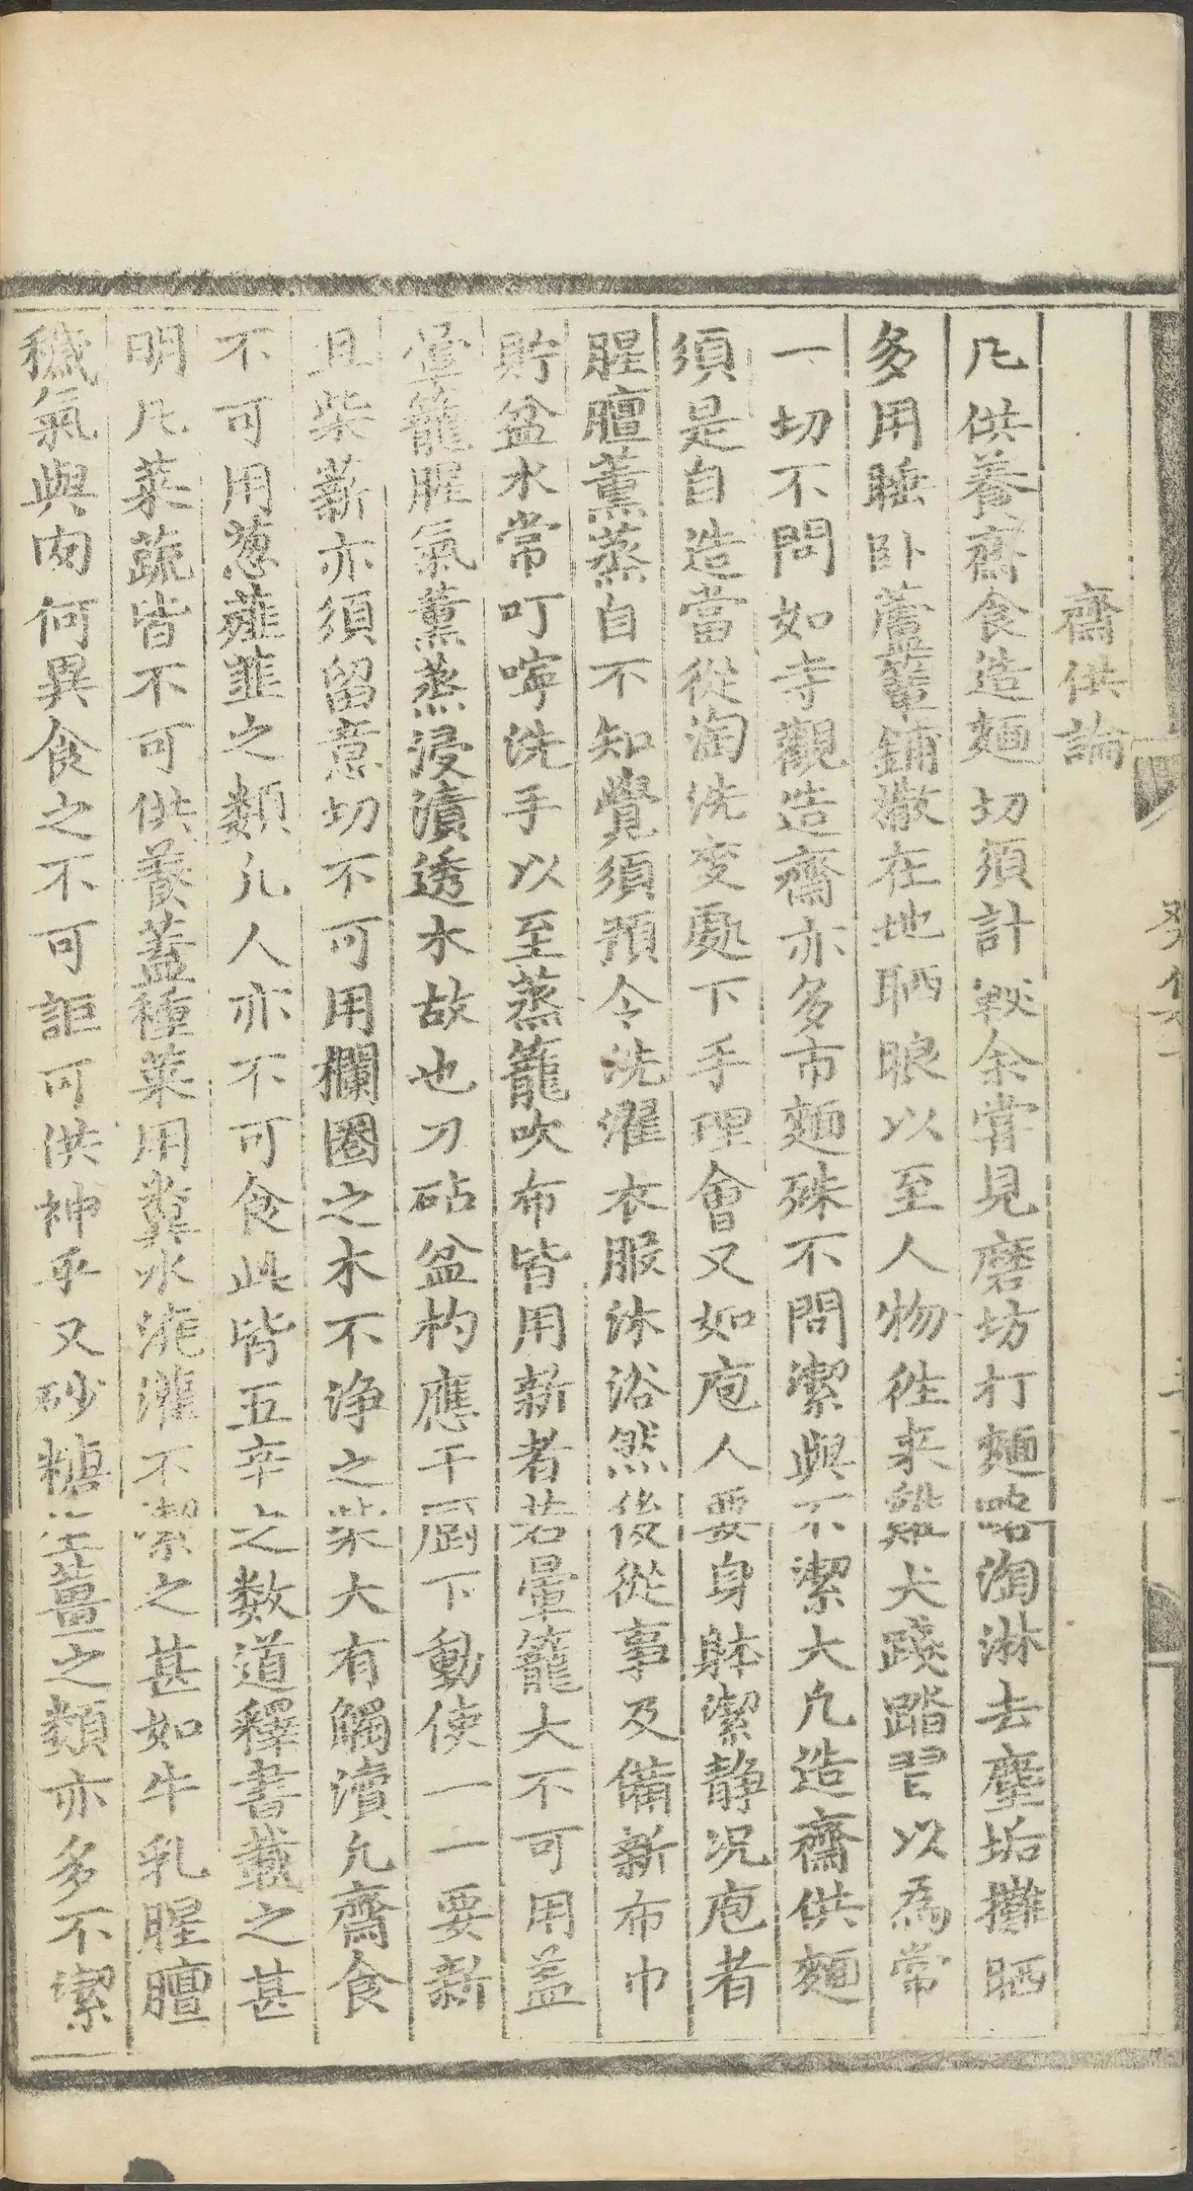 齋供論
凡供養齋食造麵切須計較余嘗見磨坊打麵略淘淋去塵垢攤晒
多用睡卧蘆䉬鋪撒在地晒眼以至人物徃来雞犬踐踏習以為常
一切不問如寺觀造齋亦多市麵殊不問潔與不潔大凡造齋供麵
須是自造當從淘洗变䖏下手理會又如庖人要身躰潔静况庖者
腥膻薰蒸自不知覺須預令洗濯衣服沐浴然後從事及備新布巾
貯盆水常叮嚀洗手以至蒸籠吹布皆用新者若暈籠大不可用盖
暈籠腥氣薰蒸浸漬透木故也刀砧盆杓應干厨下動使一一要新
且柴薪亦須留意切不可用欄圈之木不净之柴大有觸瀆凡齋食
不可用葱薤韮之類凡人亦不可食此皆五辛之数道釋書載之甚
明凡菜蔬皆不可供養蓋種菜用糞水澆灌不潔之甚如牛乳腥膻
穢氣與肉何異食之不可詎可供神乎又砂糖生薑之類亦多不潔